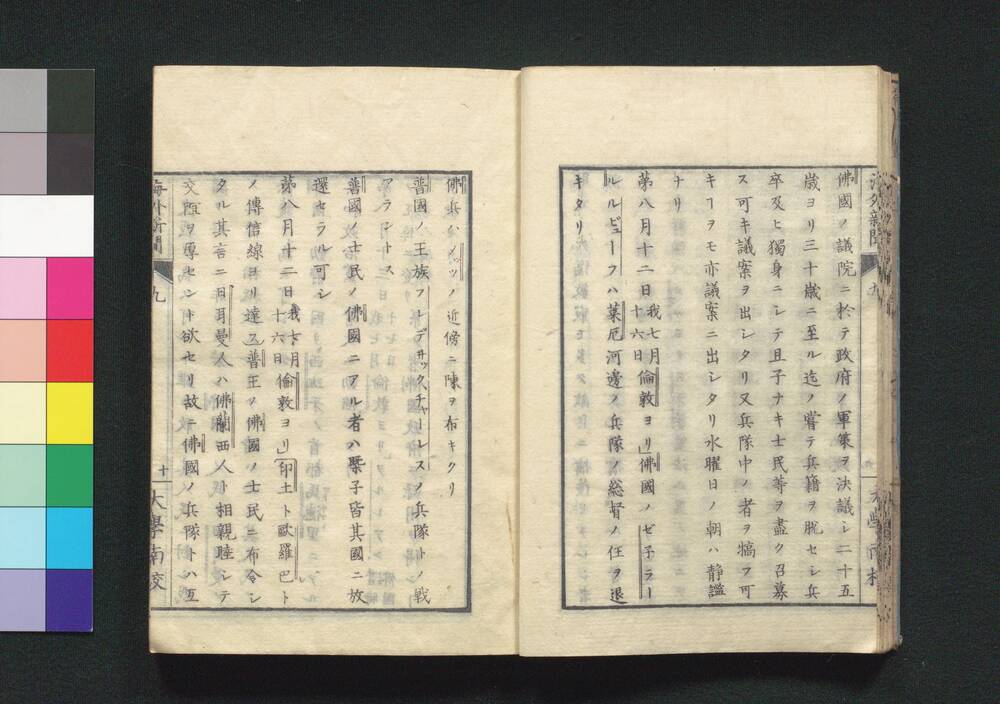 佛國ノ議院ニ於テ政府ノ軍策ヲ決議シ二十五
歳ヨリ三十歳ニ至ル迄ノ嘗テ兵籍ヲ脱セシ兵
卒及ヒ獨身ニシテ且子ナキ士民等ヲ盡ク召募
ス可キ議案ヲ出シタリ又兵隊中ノ者ヲ犒フ可
キヿヲモ亦議案ニ出シタリ水曜日ノ朝ハ静謐
ナリ
第八月十二日我七月十六日倫敦ヨリ」佛國ノゼ子ラー
ルルビューフハ葉厄河邊ノ兵隊ノ総督ノ任ヲ退
キタリ
海外新聞 九
佛兵ハメッツノ近傍ニ陳ヲ布キタリ
普國ノ王族フレデリックチャーレスノ兵隊トノ戰
アラントス
普國士民ノ佛國ニアル者ハ孥子皆其國ニ放
還セラル可シ
第八月十二日我七月十六日倫敦ヨリ」印土ト歐羅巴ト
ノ傳信線ヨリ達ス普王ヨリ佛國ノ士民ニ布令シ
タル其言ニ曰日耳曼人ハ佛蘭西人ト相親睦シテ
交誼ヲ專セント欲セリ故ニ佛國ノ兵隊トハ互
海外新聞 九 十 大學南校